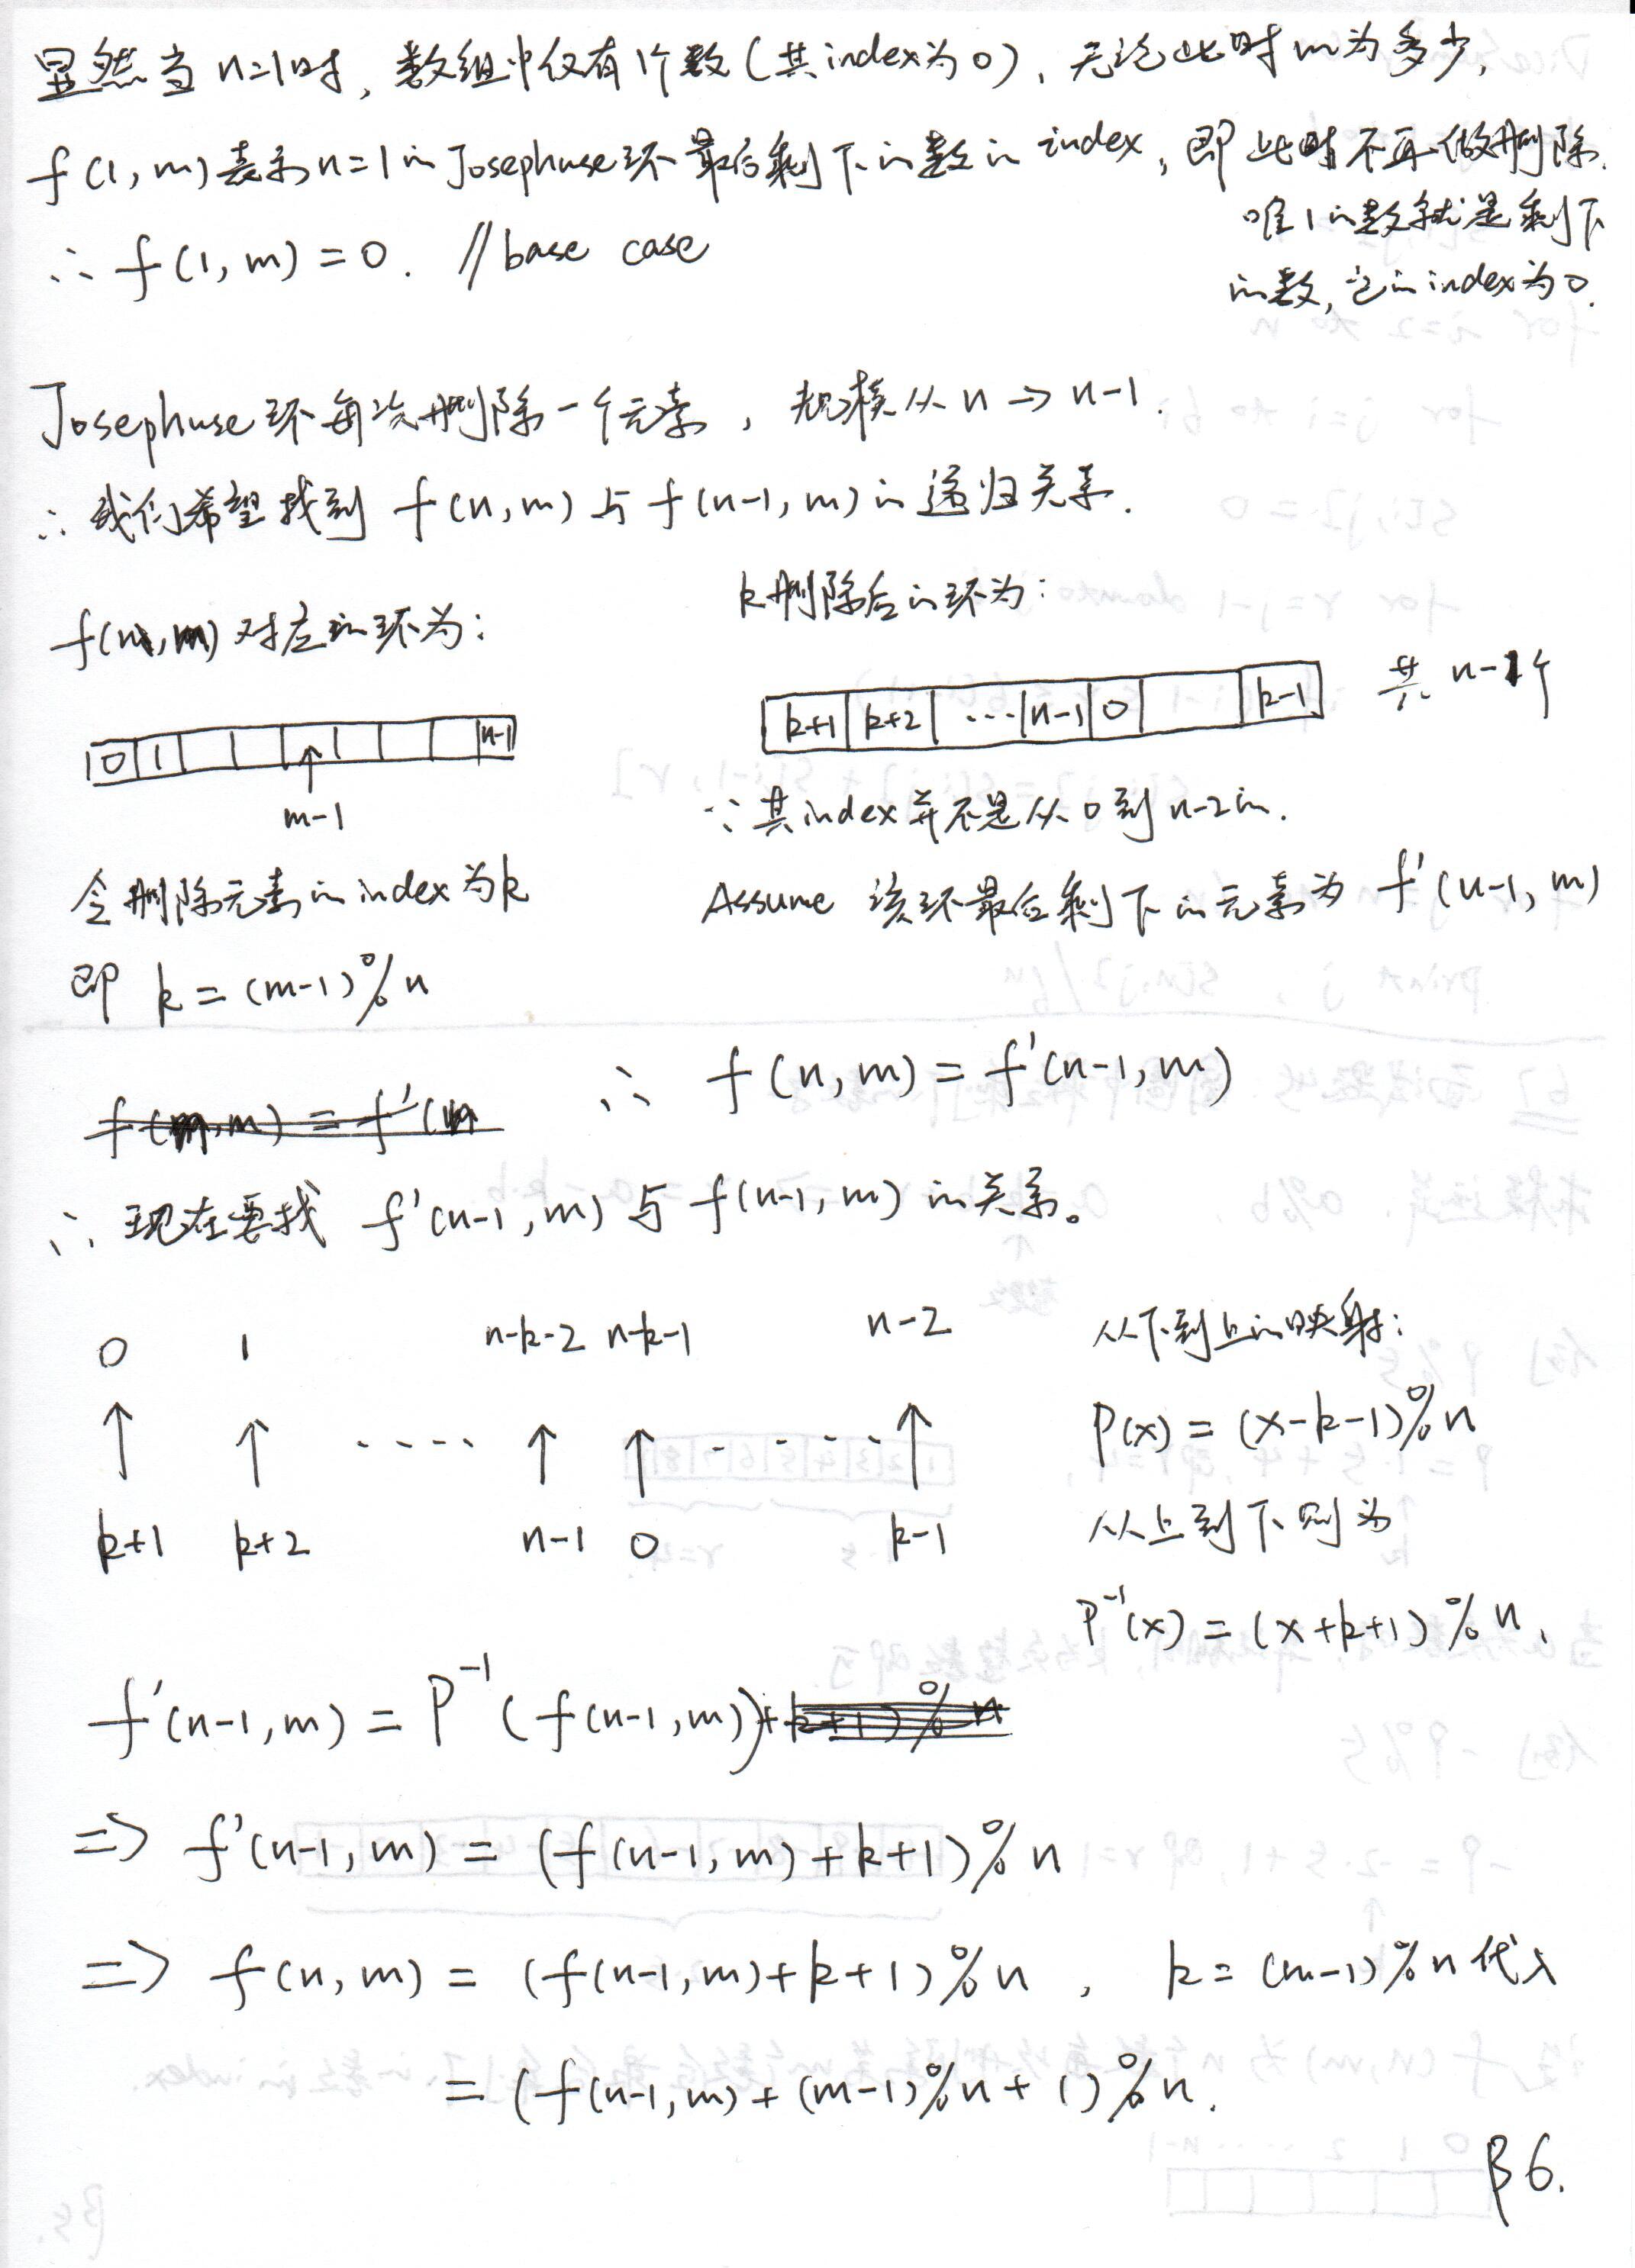 显然当 n=1时, 数组中仅有1个数(其index为0), 无论此时m为多少,
f(1, m)表示n=1的Josephuse环最后剩下的数的index, 即此时不再做删除.
唯1的数就是剩下
的数, 它的index为0.
∴ f(1, m) = 0. //base case
Josephuse环每次删除一个元素, 规模从 n → n-1.
∴ 我们希望找到 f(n, m) 与 f(n-1, m) 的递归关系.
f(n, m) 对应的环为:
0 1 n-1
m-1
令删除元素的index为k
即 k = (m-1)%n
k删除后的环为:
k+1 k+2 ... n-1 0 k-1 共 n-1个
∵ 其index并不是从0到n-2的.
Assume 该环最后剩下的元素为 f'(n-1, m)
∴ f(n, m) = f'(n-1, m)
∴ 现在要找 f'(n-1, m) 与 f(n-1, m) 的关系。
0 1 n-k-2 n-k-1 n-2
↑ ↑ .... ↑ ↑ - .... ↑
k+1 k+2 n-1 0 k-1
从下到上的映射:
P(x) = (x-k-1)%n
从上到下则为
P⁻¹(x) = (x+k+1)%n,
f'(n-1, m) = P⁻¹(f(n-1, m))
=> f'(n-1, m) = (f(n-1, m) + k+1)%n
=> f(n, m) = (f(n-1, m)+k+1)%n , k = (m-1)%n 代入
= (f(n-1, m) + (m-1)%n + 1)%n.
β6.